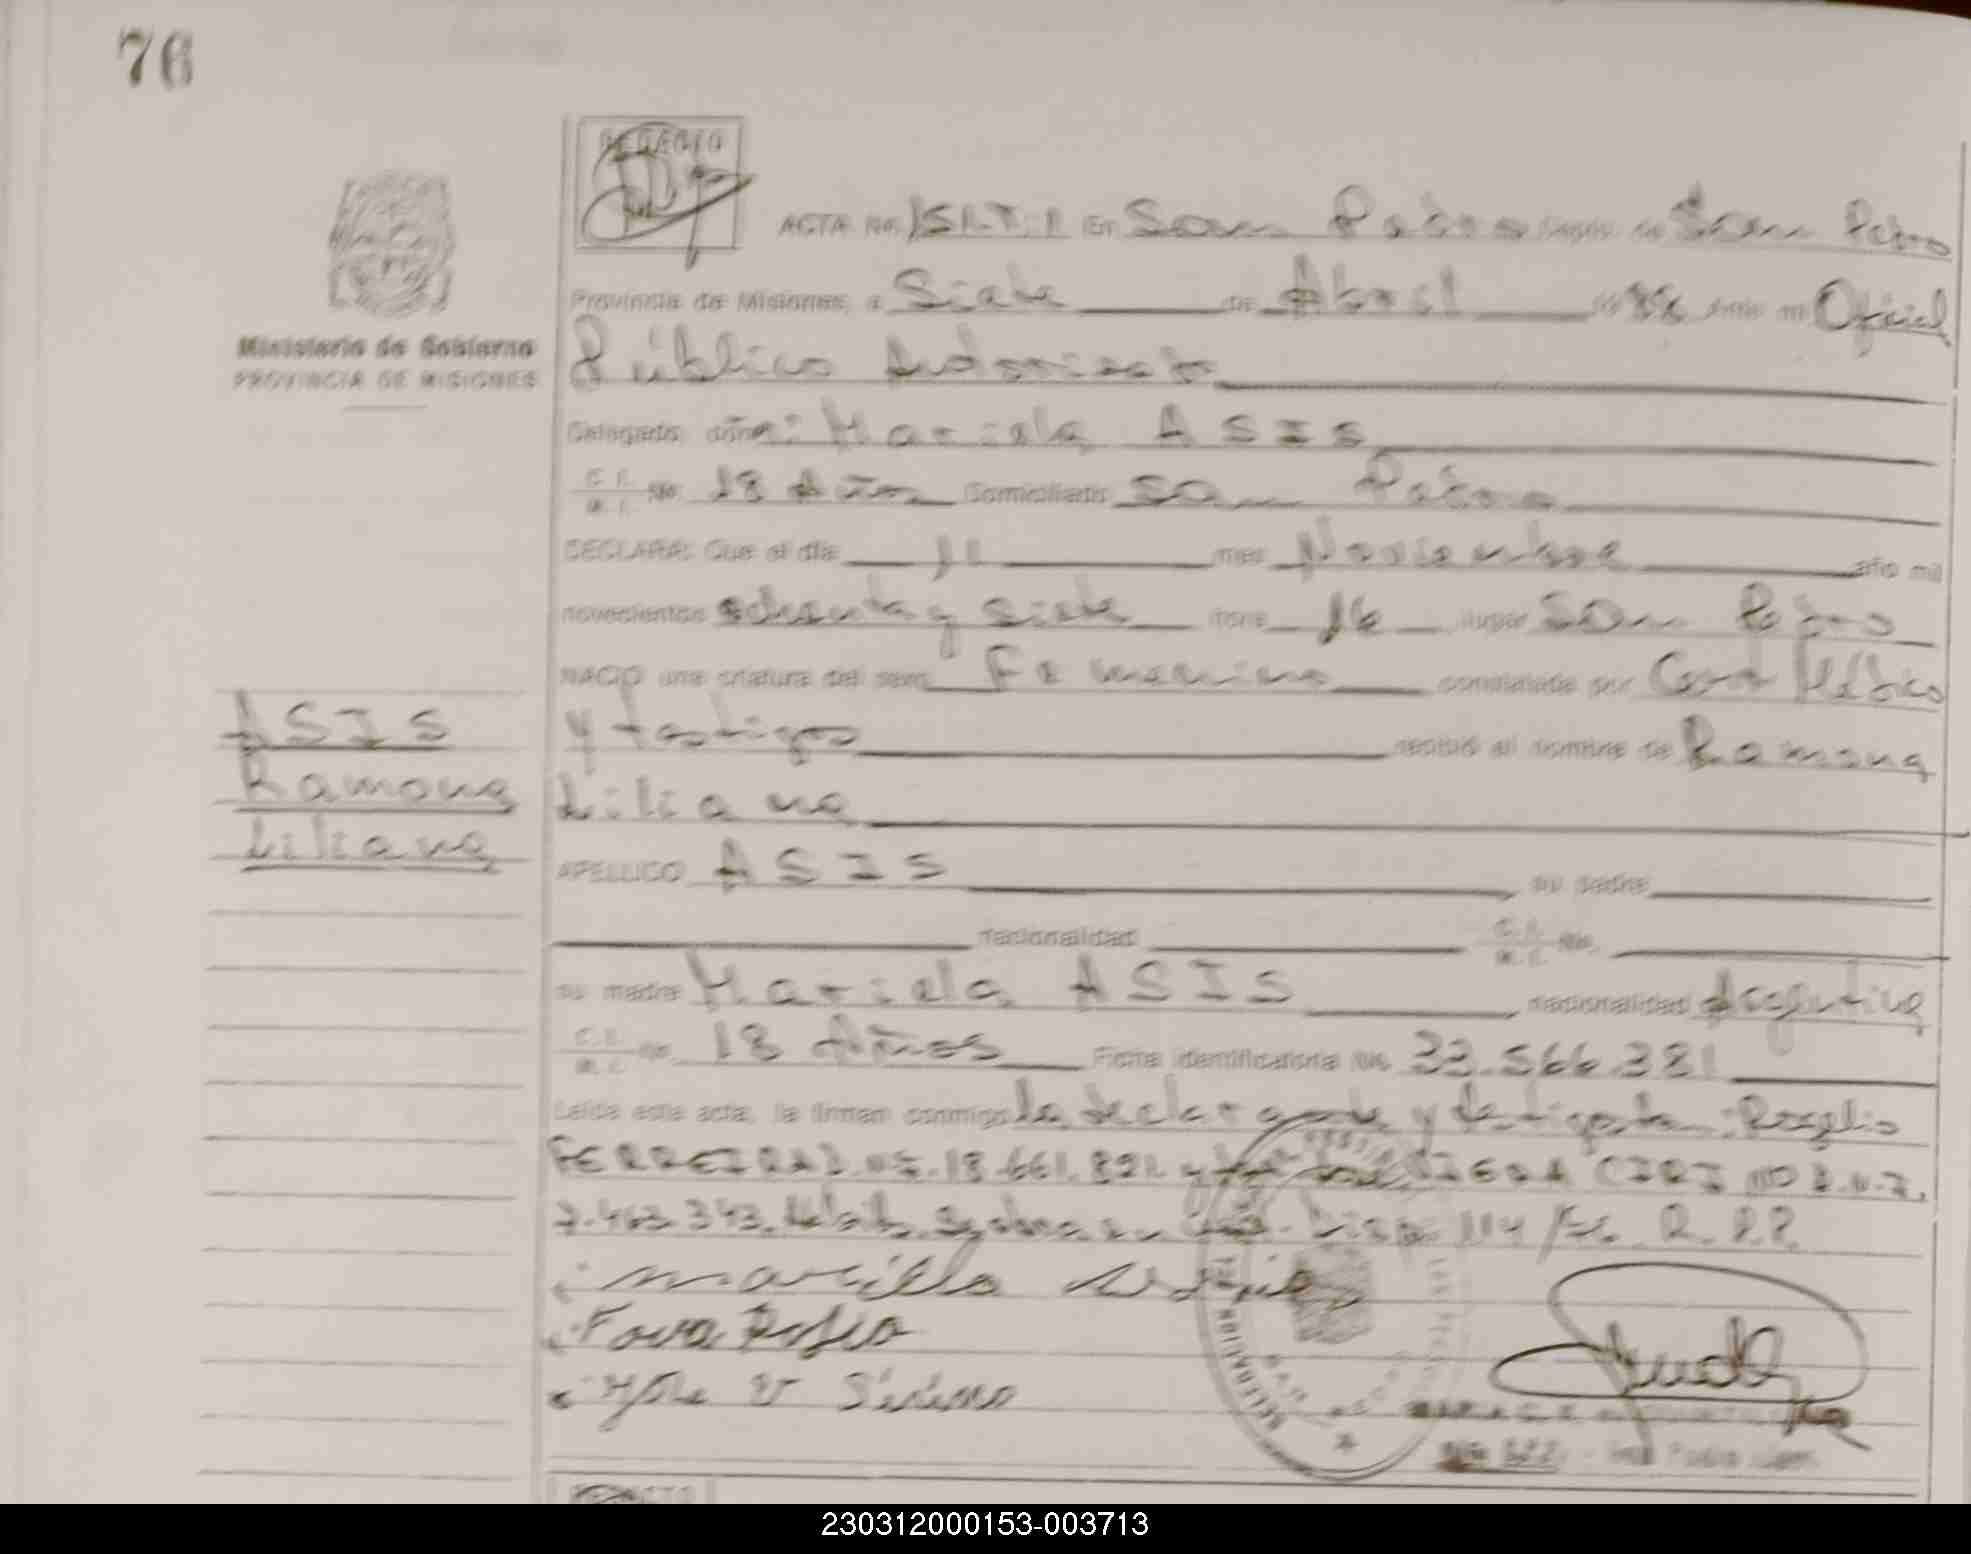 76
Ministerio de Gobierno
PROVINCIA DE MISIONES
ACTA No. En San Pedro Dpto. de San Pedro
Provincia de Misiones, a Siete de Abril de 88 Ante mi Oficial
Público Autorizado
Delegado, doña: Mariela ASIS
C. I. M. I. No. 18 Años Domiciliado San Pedro
DECLARA: Que el día 11 mes Noviembre año mil
novecientos ochenta y siete hora 16 lugar San Pedro
NACIO una criatura del sexo Femenino constatada por Cert Médico
y testigos recibió el nombre de Ramona
Liliana
ASIS
Ramona
Liliana
APELLIDO ASIS su padre
nacionalidad C. I. M. I. No.
su madre Mariela ASIS nacionalidad Argentina
C. I. M. I. No. 18 Años Ficha identificatoria No. 33.566.381
Leída esta acta, la firman conmigo la declarante y testigos Rogelio
FERREIRA D.N.I. 18.661.821 y CIRINO D.N.I.
7.463.343. Disp. 114 /
230312000153-003713